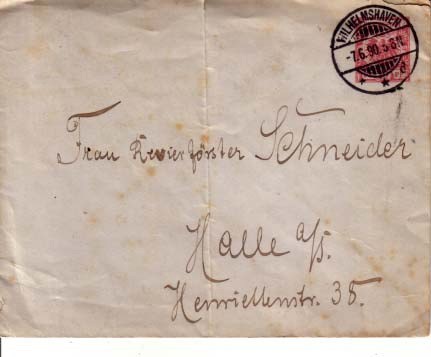 WILHELMSHAVEN
-7.6.90.5-8N.
Frau Revierförster Schneider
Halle a/S.
Henriettenstr. 38.